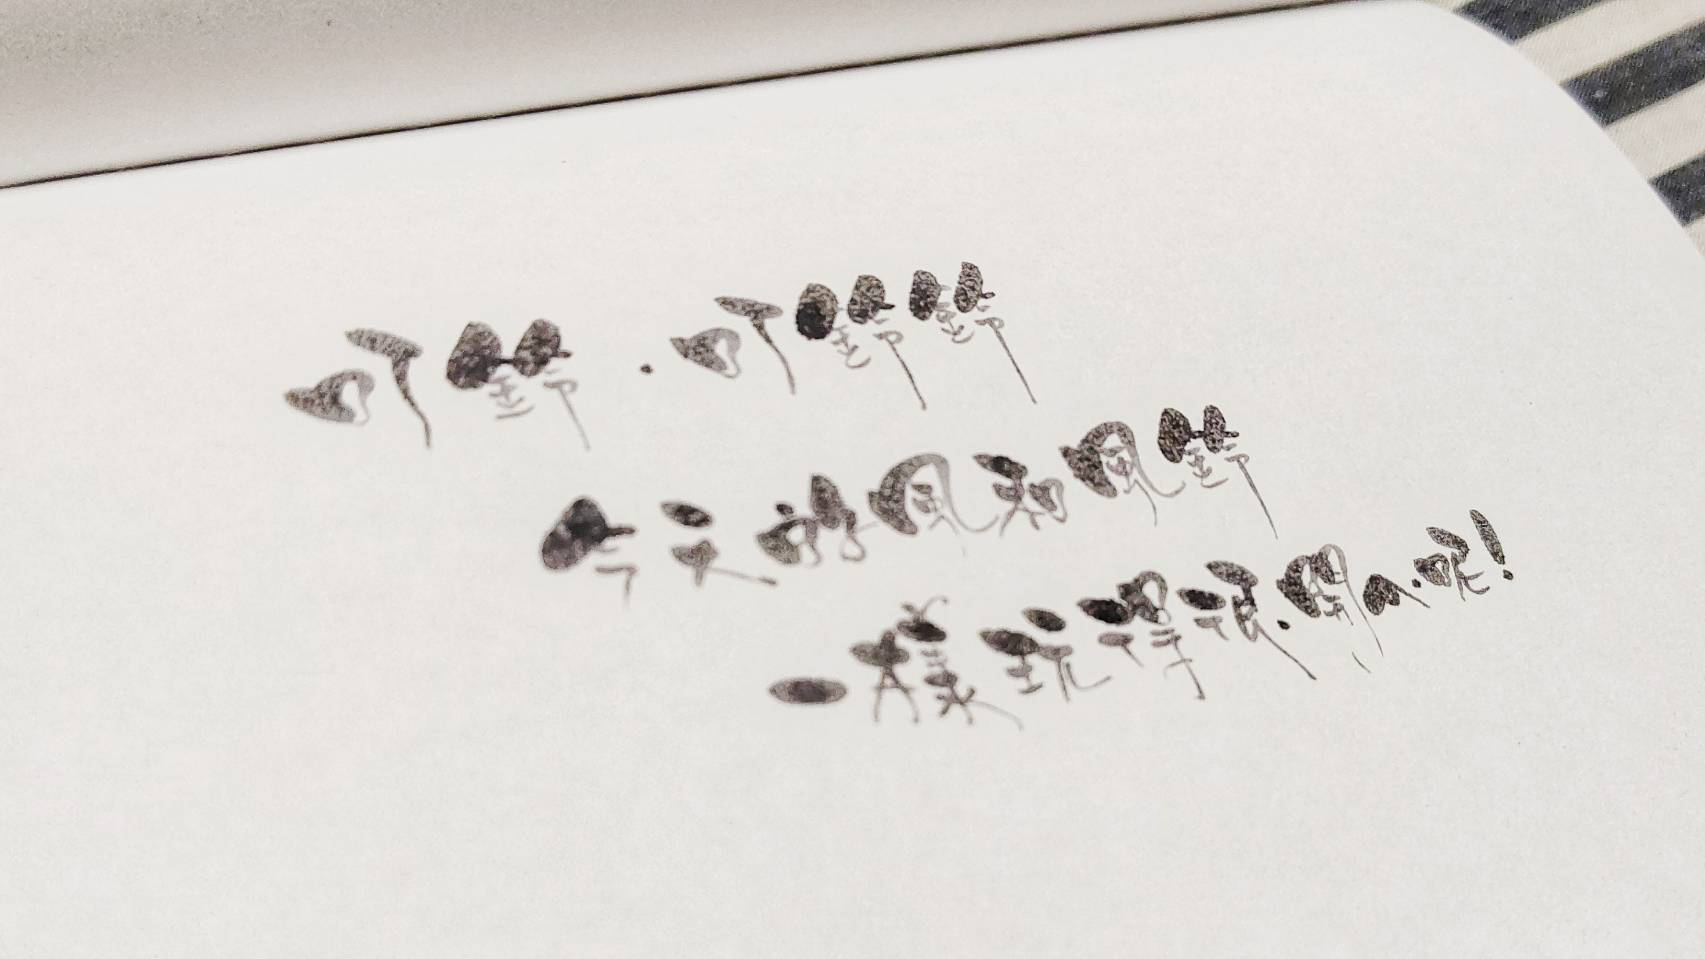 叮鈴．叮鈴鈴
今天的風和風鈴
一樣玩得很開心呢！